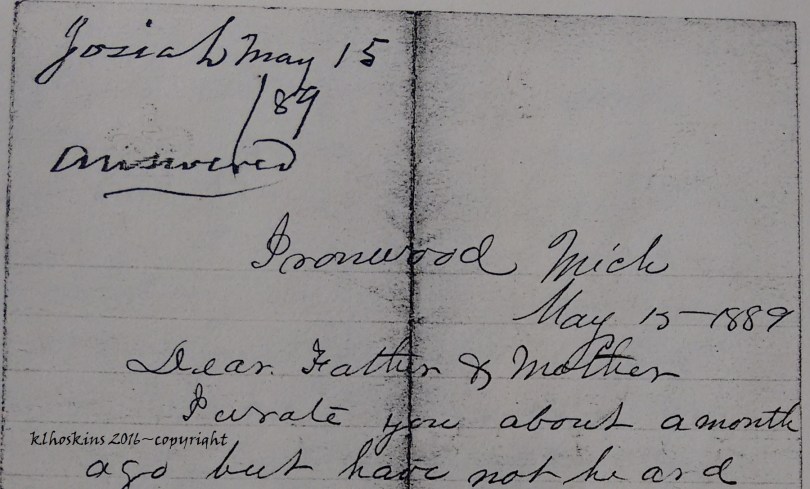 Josiah May 15
/89
Answered
Ironwood Mich
May 15-1889
Dear Father & Mother
I wrate you about a month
ago but have not heard
klhoskins 2016~copyright